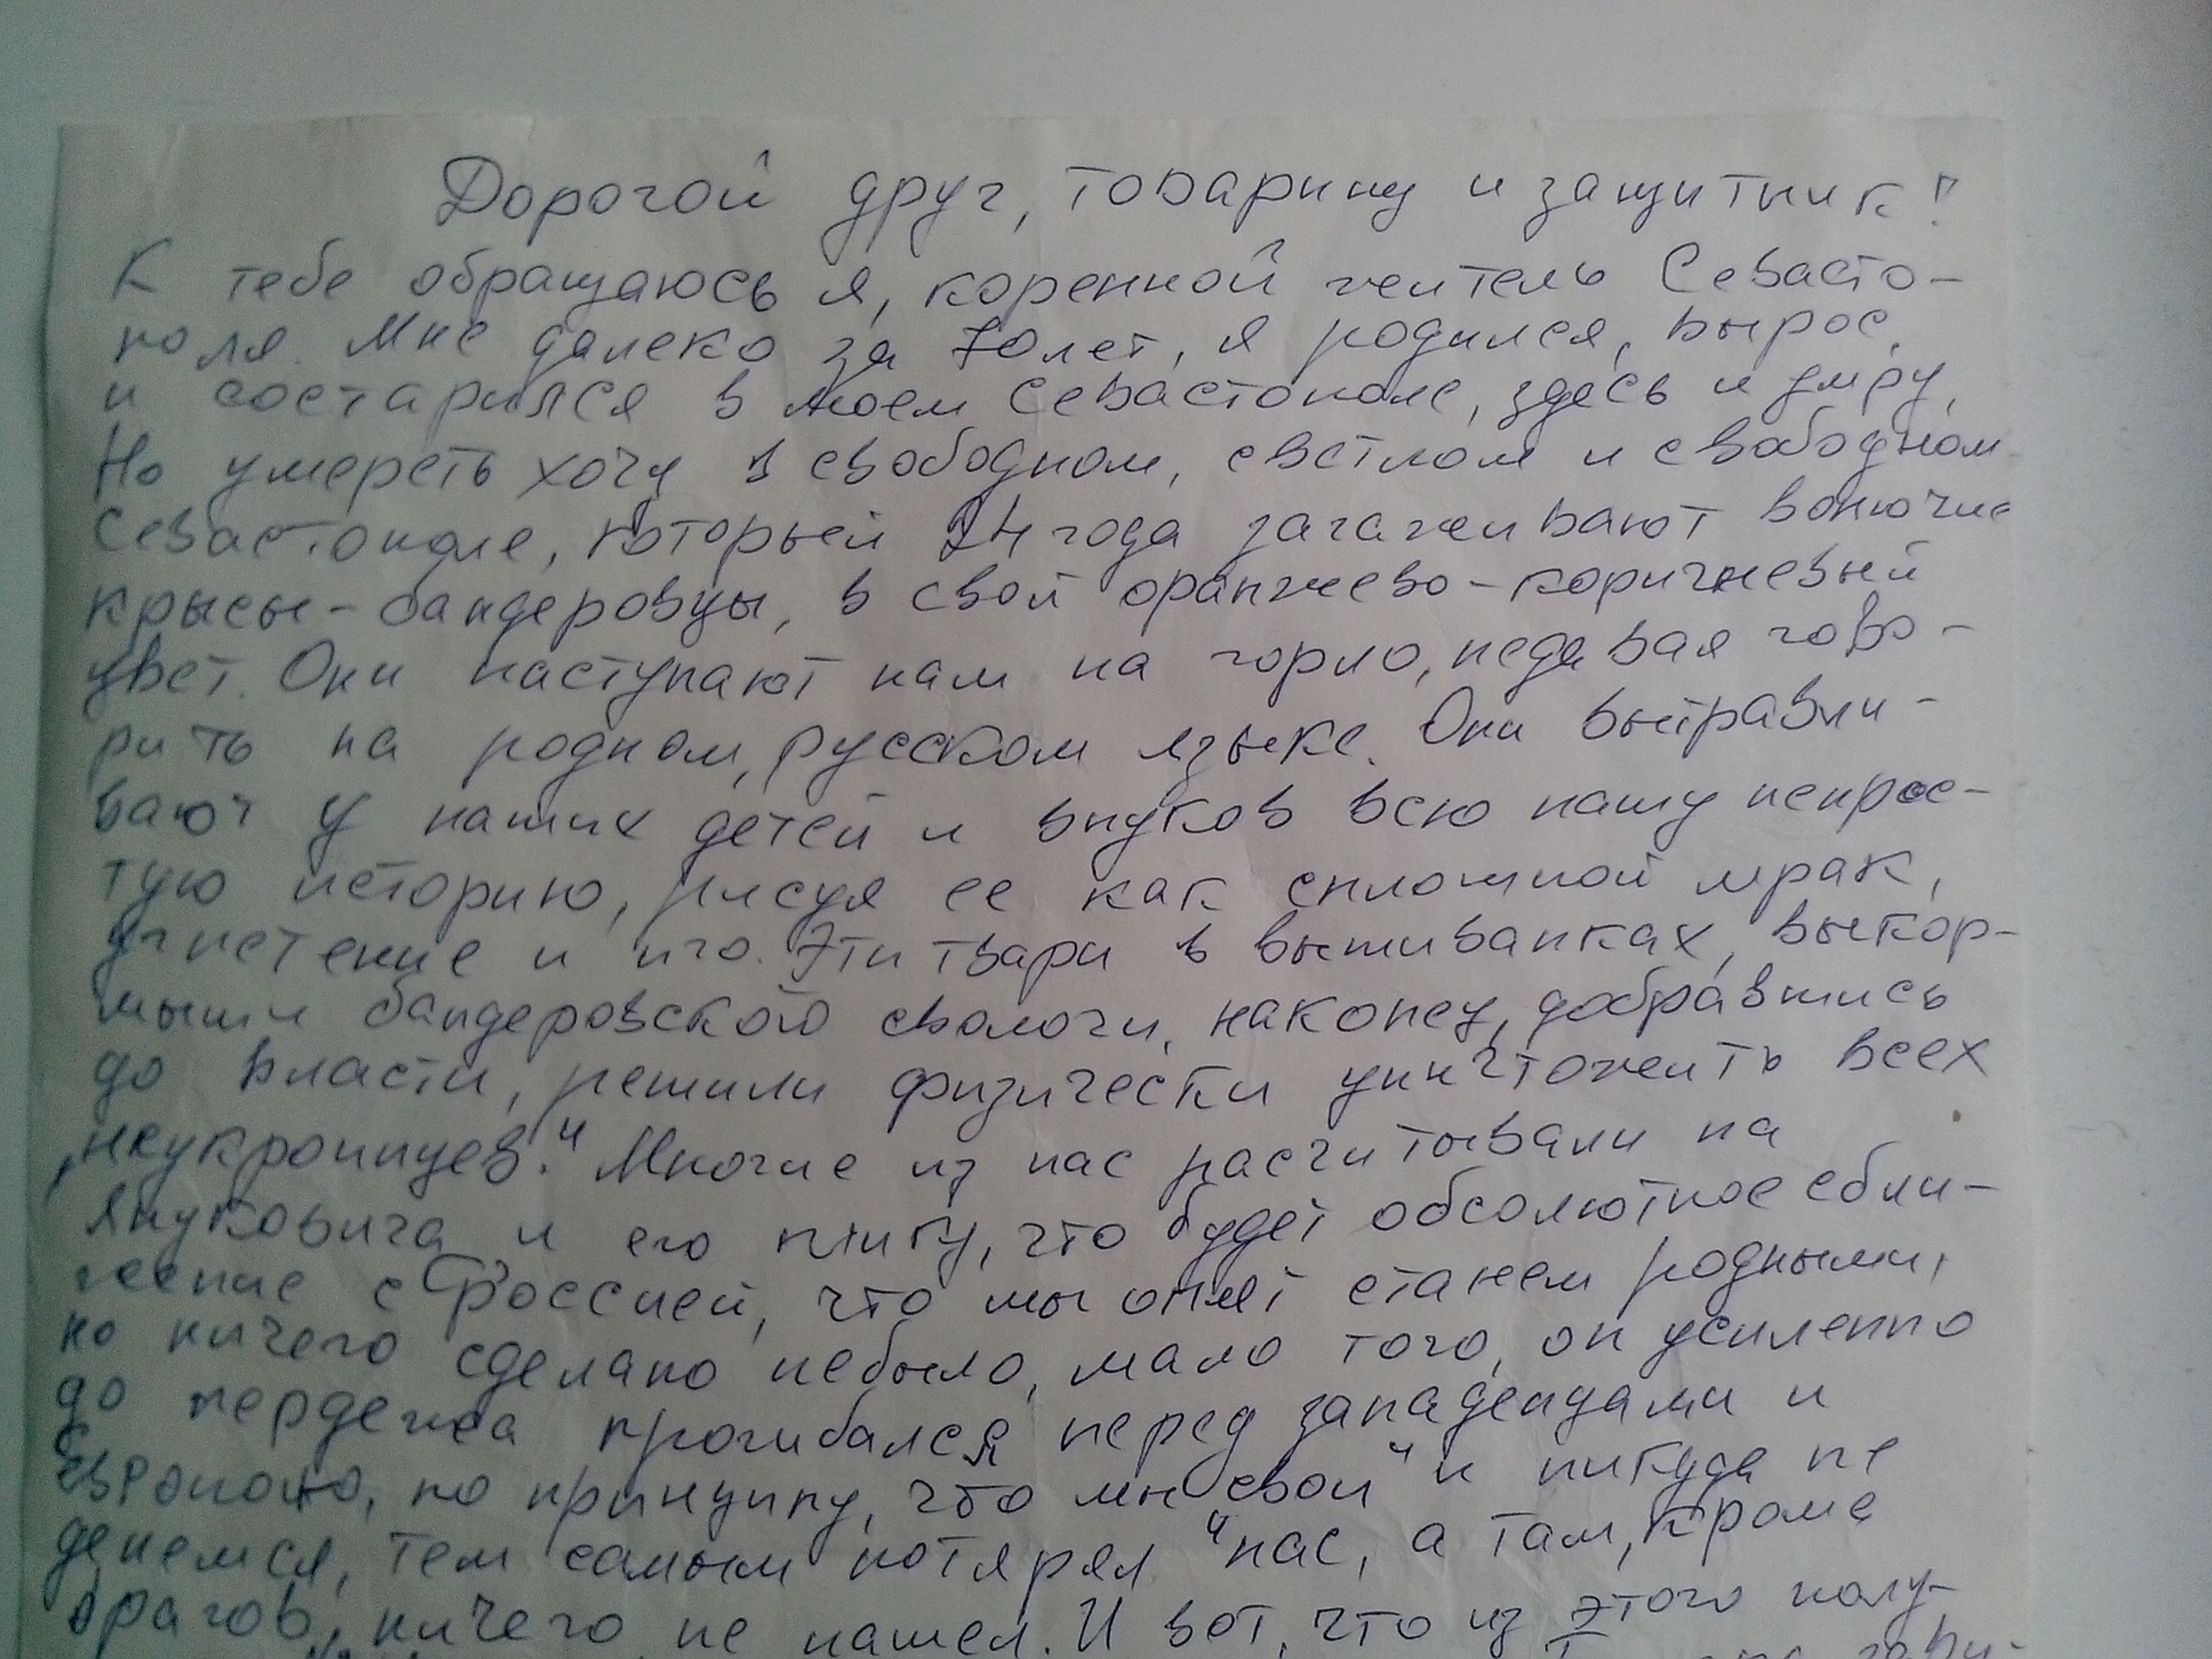 Дорогой друг, товарищ и защитник!
К тебе обращаюсь я, коренной житель Севасто-
поля. Мне далеко за 70 лет, я родился, вырос,
и состарился в моем Севастополе, здесь и умру,
Но умереть хочу в свободном, светлом и свабодном
Севастополе, который 24 года загаживают вонючие
крысы-бандеровцы, в свой оранжево-коричневый
цвет. Они наступают нам на горло, недавая гово-
рить на родном, русском языке. Они вытравли-
вают у наших детей и внуков всю нашу непрос-
тую историю, рисуя ее как сплошной мрак,
угнетение и иго. Эти твари в вышиванках, выкор-
мыши бандеровской сволочи, наконец, добравшись
до власти, решили физически уничтожить всех
„неукроинцев." Многие из нас расчитывали на
Януковича и его клику, что будет обсолютное сбли-
жение с Россией, что мы опят станем родными,
но ничего сделано небыло, мало того, он усиленно
до пердежа прогибался перед западендами и
Европою, по принципу, что мы свои" и никуда не
денемся, тем самым потярял "нас, а там, кроме
врагов, ничего не нашел. И вот, что из этого полу-